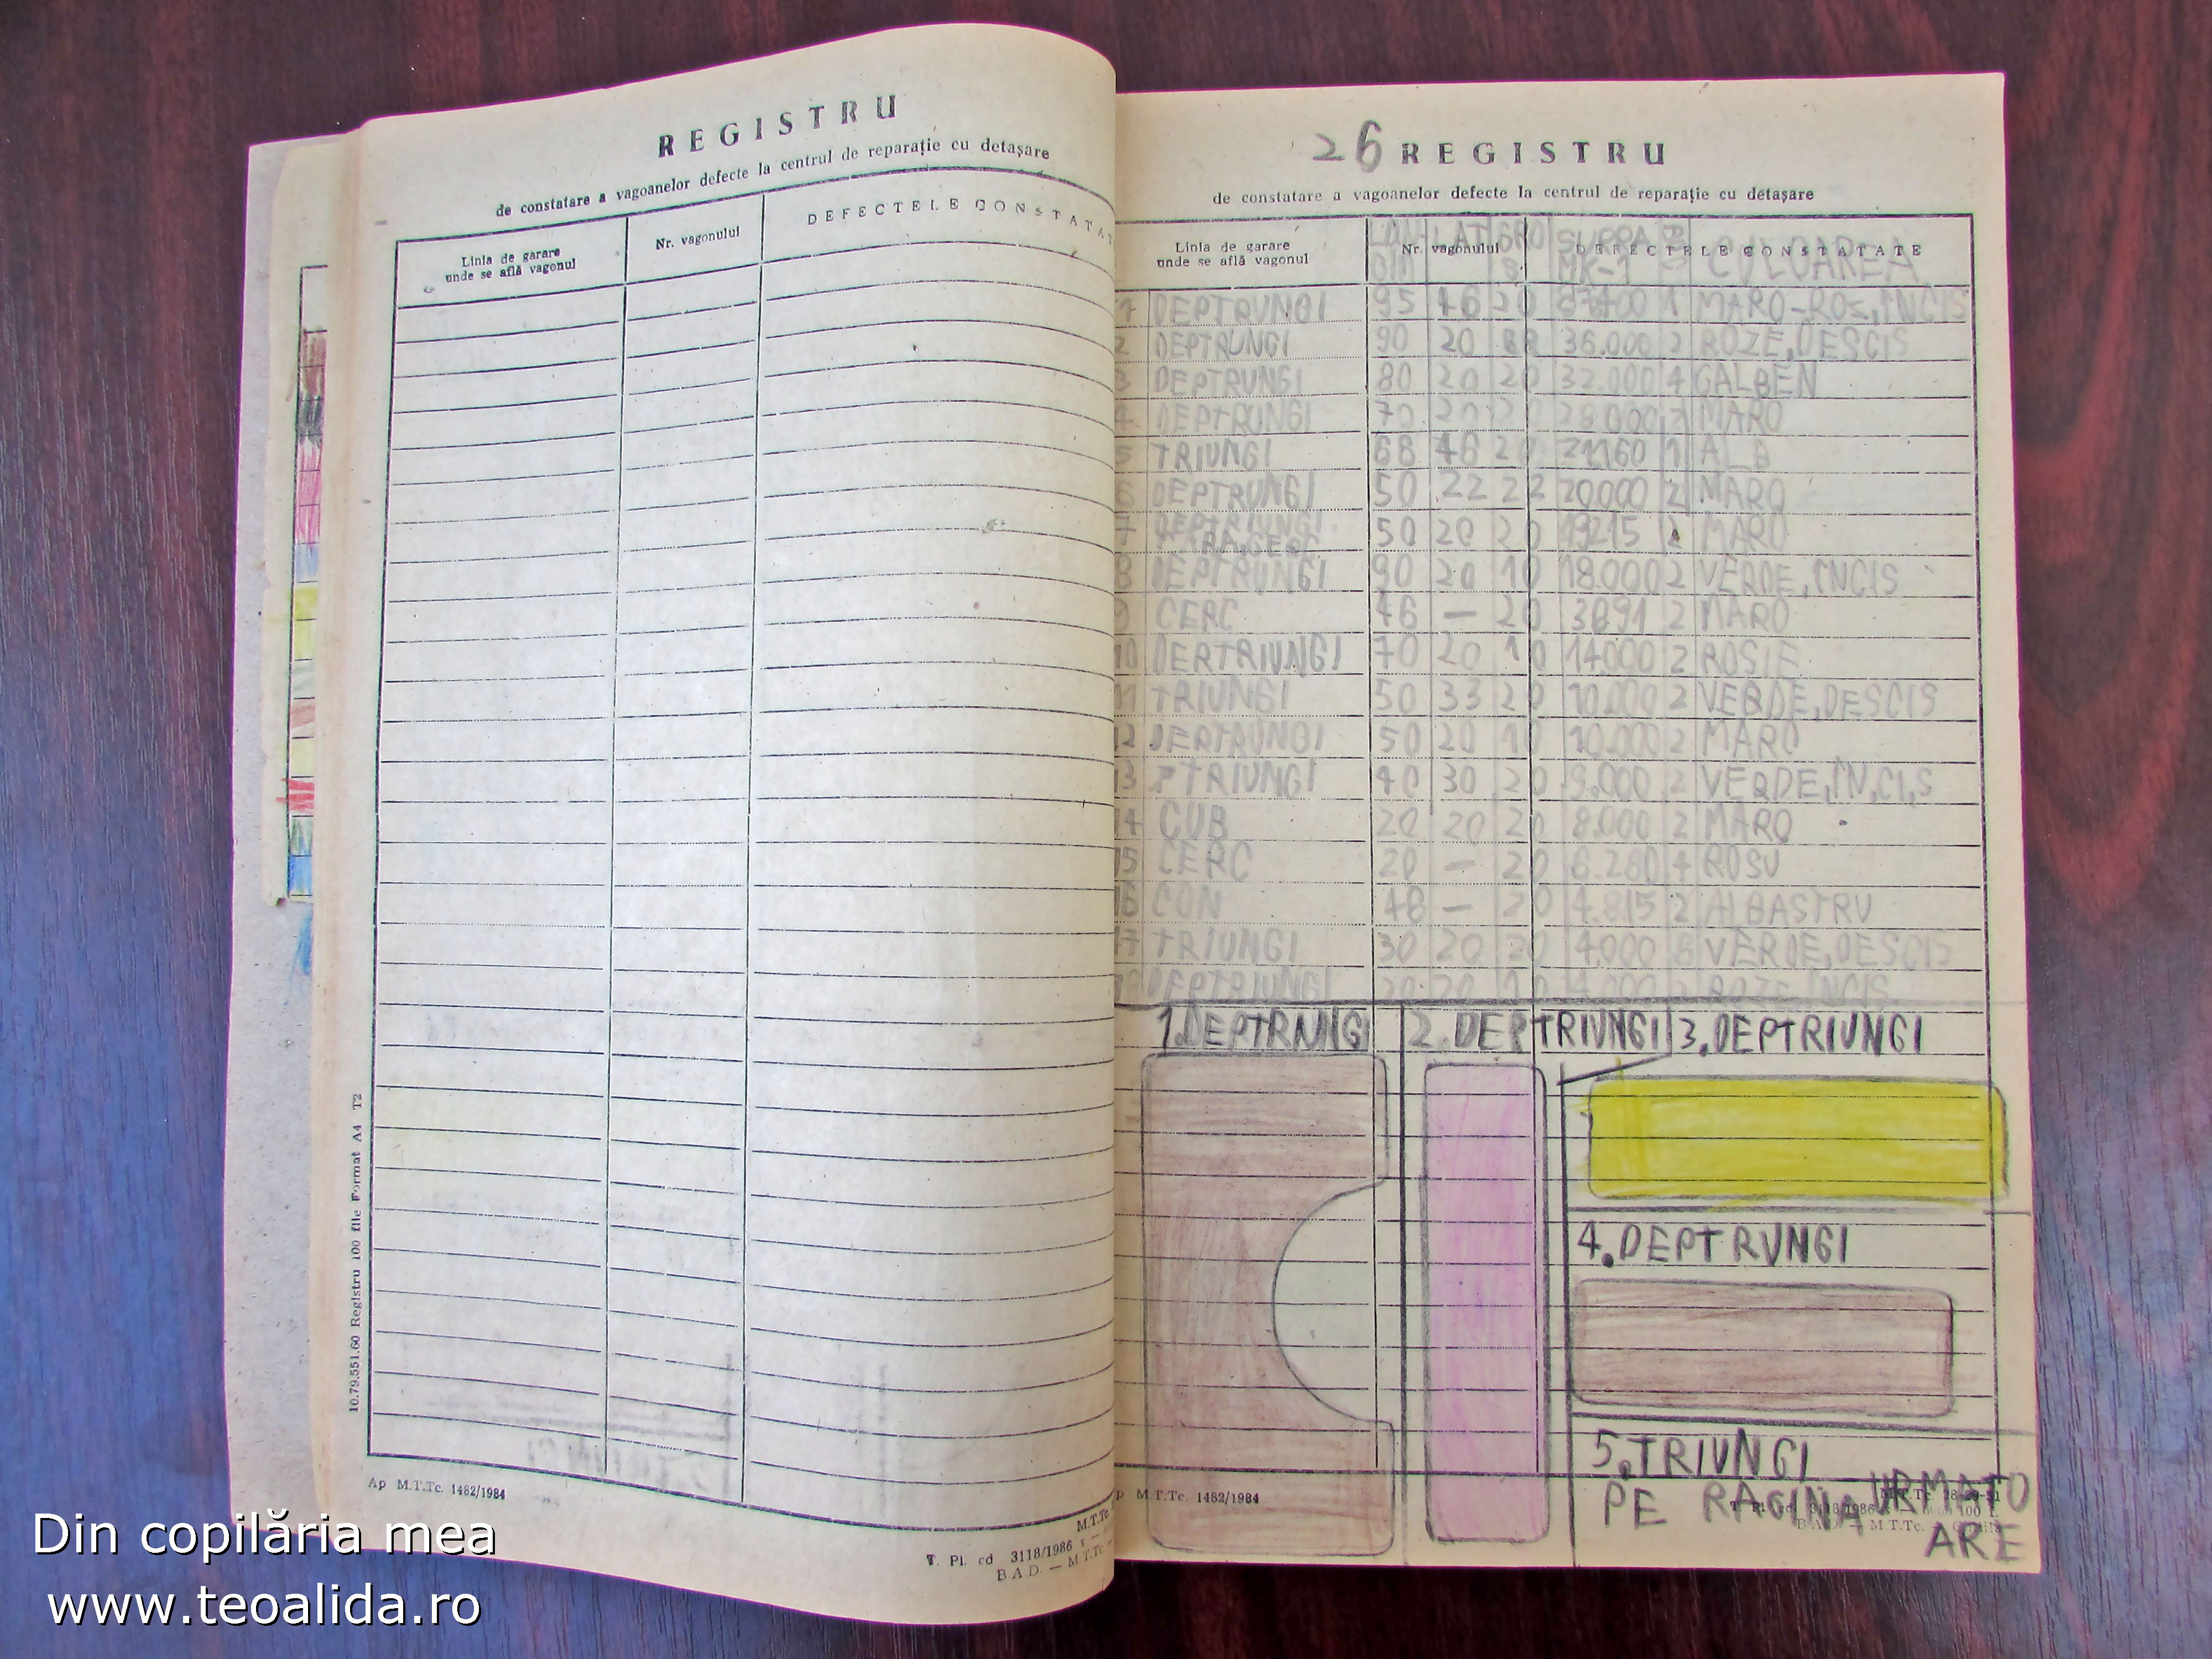 REGISTRU
de constatare a vagoanelor defecte la centrul de reparație cu detașare
Linia de garare
unde se află vagonul
Nr. vagonului
DEFECTELE CONSTATA
10.79.551.60 Registru 100 file Format A4 T2
Ap M.T.Tc. 1482/1984
M.T.Tc.
T. Pl. cd 3118/1986 s
B.A.D. — M.T.Tc. —
26 REGISTRU
de constatare a vagoanelor defecte la centrul de reparație cu detașare
Linia de garare
unde se află vagonul
Nr. vagonului
DEFECTELE CONSTATATE
CULOAREA
1 DEPTRUNGI 95 46 20 87400 1 MARO-ROZ,INCIS
2 DEPTRUNGI 90 20 36.000 2 ROZE,DESCIS
3 DEPTRUNGI 80 20 20 32.000 4 GALBEN
4 DEPTRUNGI 70 20 20 28.000 MARO
5 TRIUNGI 68 46 20 1 ALB
6 DEPTRUNGI 50 22 22 20.000 2 MARO
7 DEPTRIUNGI 50 20 20 19215 2 MARO
8 DEPTRUNGI 90 20 10 18.000 2 VERDE,INCIS
9 CERC 46 — 20 3891 2 MARO
10 DERTRIUNGI 70 20 10 14000 2 ROSIE
11 TRIUNGI 50 33 20 10.000 2 VERDE,DESCIS
12 DERTRUNGI 50 20 10 10.000 2 MARO
13 TRIUNGI 40 30 20 9.000 2 VERDE,IN,CI,S
14 CUB 20 20 20 8.000 2 MARO
15 CERC 20 — 20 6.280 4 ROSU
16 CON 48 — 20 4.815 2 ALBASTRU
17 TRIUNGI 30 20 20 4.000 6 VERDE,DESCIS
18 DEPTRIUNGI 20 20 10 4.000 2 ROZE,INCIS
1.DEPTRNNGI
2.DEPTRIUNGI
3.DEPTRIUNGI
4.DEPTRVNGI
5.TRIVNGI
PE RAGINA URMATO
ARE
p M.T.Tc. 1482/1984
Din copilăria mea
www.teoalida.ro